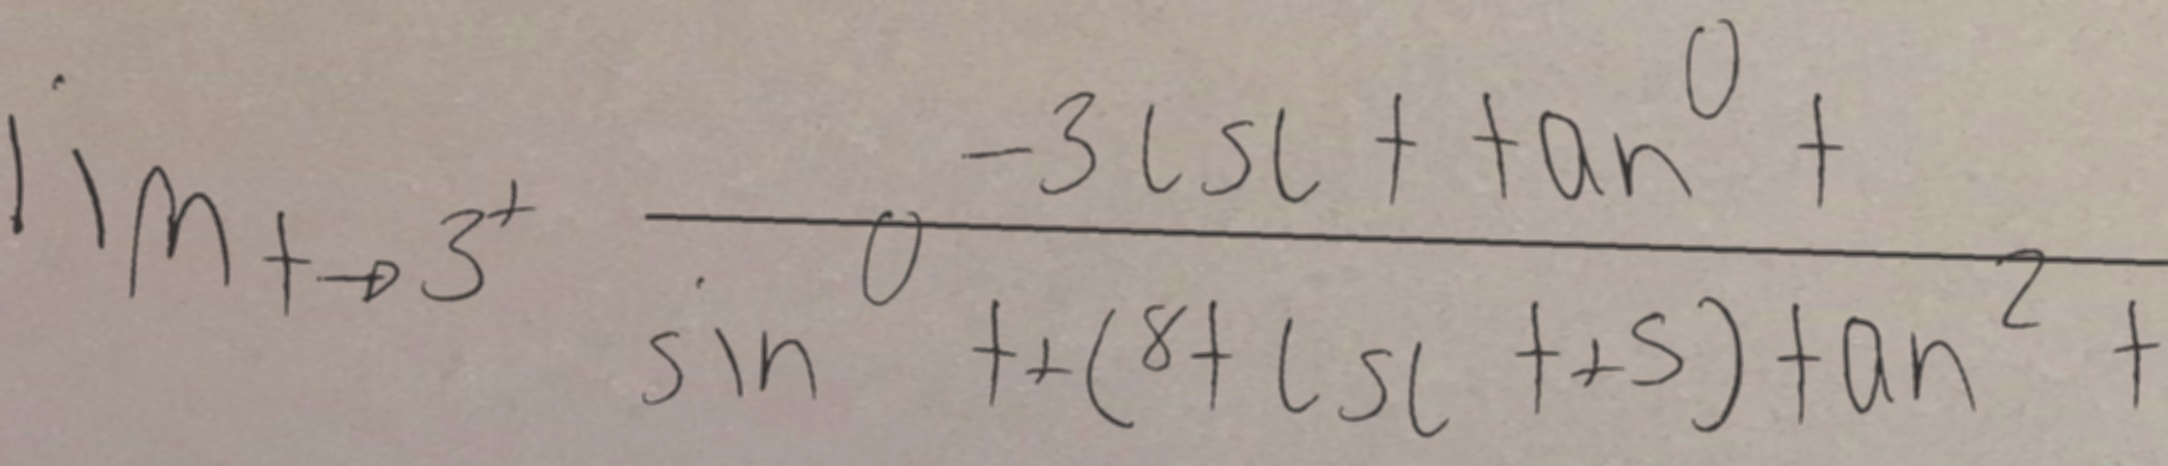 \lim_{t \to 3^+} \frac{-3 \csc t \tan^0 t}{\sin^0 t + (8t \csc t + 5) \tan^2 t}